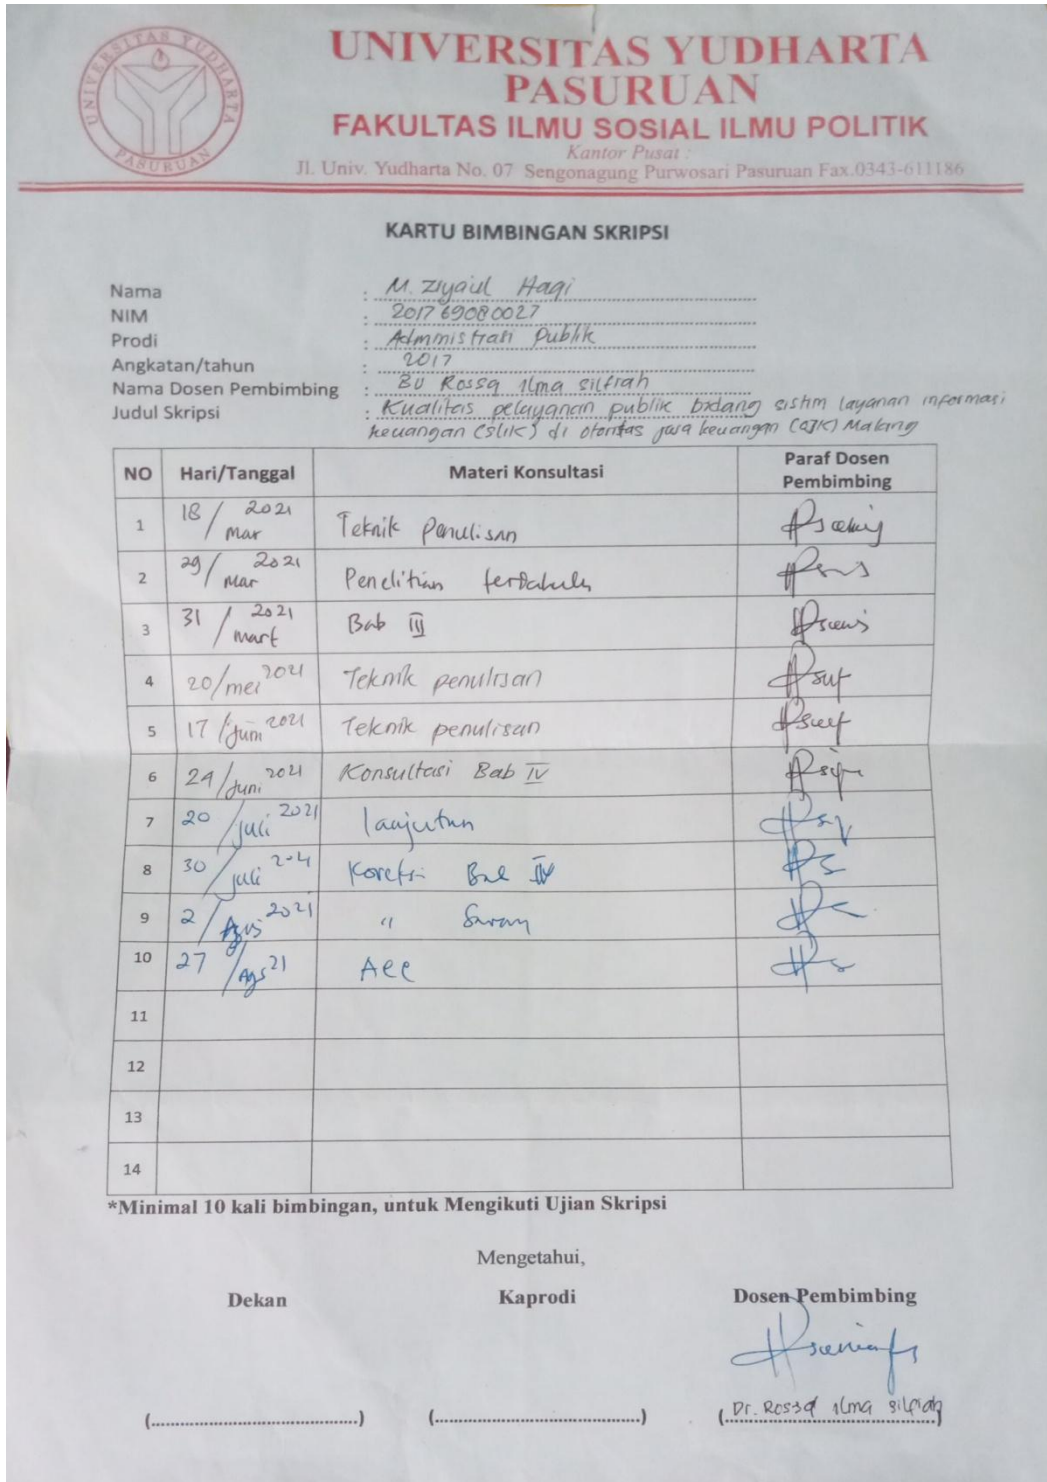 UNIVERSITAS YUDHARTA
PASURUAN
UNIVERSITAS YUDHARTA
PASURUAN
FAKULTAS ILMU SOSIAL ILMU POLITIK
Kantor Pusat :
Jl. Univ. Yudharta No. 07 Sengonagung Purwosari Pasuruan Fax.0343-611186
KARTU BIMBINGAN SKRIPSI
Nama : M. Ziyaiul Haqi
NIM : 201769080027
Prodi : Administrasi Publik
Angkatan/tahun : 2017
Nama Dosen Pembimbing : BU Rossa ilma silfiah
Judul Skripsi : Kualitas pelayanan publik bidang sistim layanan informasi
keuangan (SLIK) di otoritas jasa keuangan (OJK) Malang
NO Hari/Tanggal Materi Konsultasi Paraf Dosen Pembimbing
1 18/Mar 2021 Teknik Penulisan
2 29/Mar 2021 Penelitian terdahulu
3 31/Mart 2021 Bab III
4 20/mei 2021 Teknik penulisan
5 17/juni 2021 Teknik penulisan
6 24/juni 2021 Konsultasi Bab IV
7 20/juli 2021 lanjutan
8 30/juli 2021 Koreksi Bab IV
9 2/Agus 2021 " Saran
10 27/Ags 21 Acc
11
12
13
14
*Minimal 10 kali bimbingan, untuk Mengikuti Ujian Skripsi
Mengetahui,
Dekan Kaprodi Dosen Pembimbing
(......................................) (......................................) (Dr. Rossa ilma silfiah)